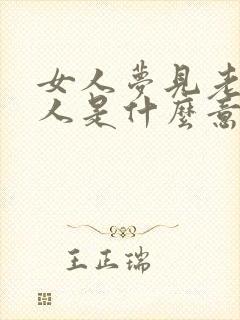 女人夢見老
人是什麼意
王正瑞